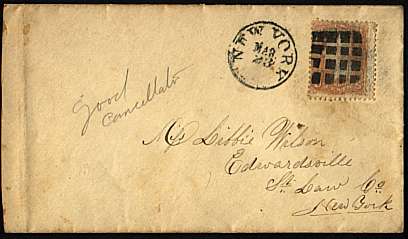 NEW YORK
MAR
23
Good
Cancellato
Mrs Libbie Wilson
Edwardsville
St. Law Co.
New York